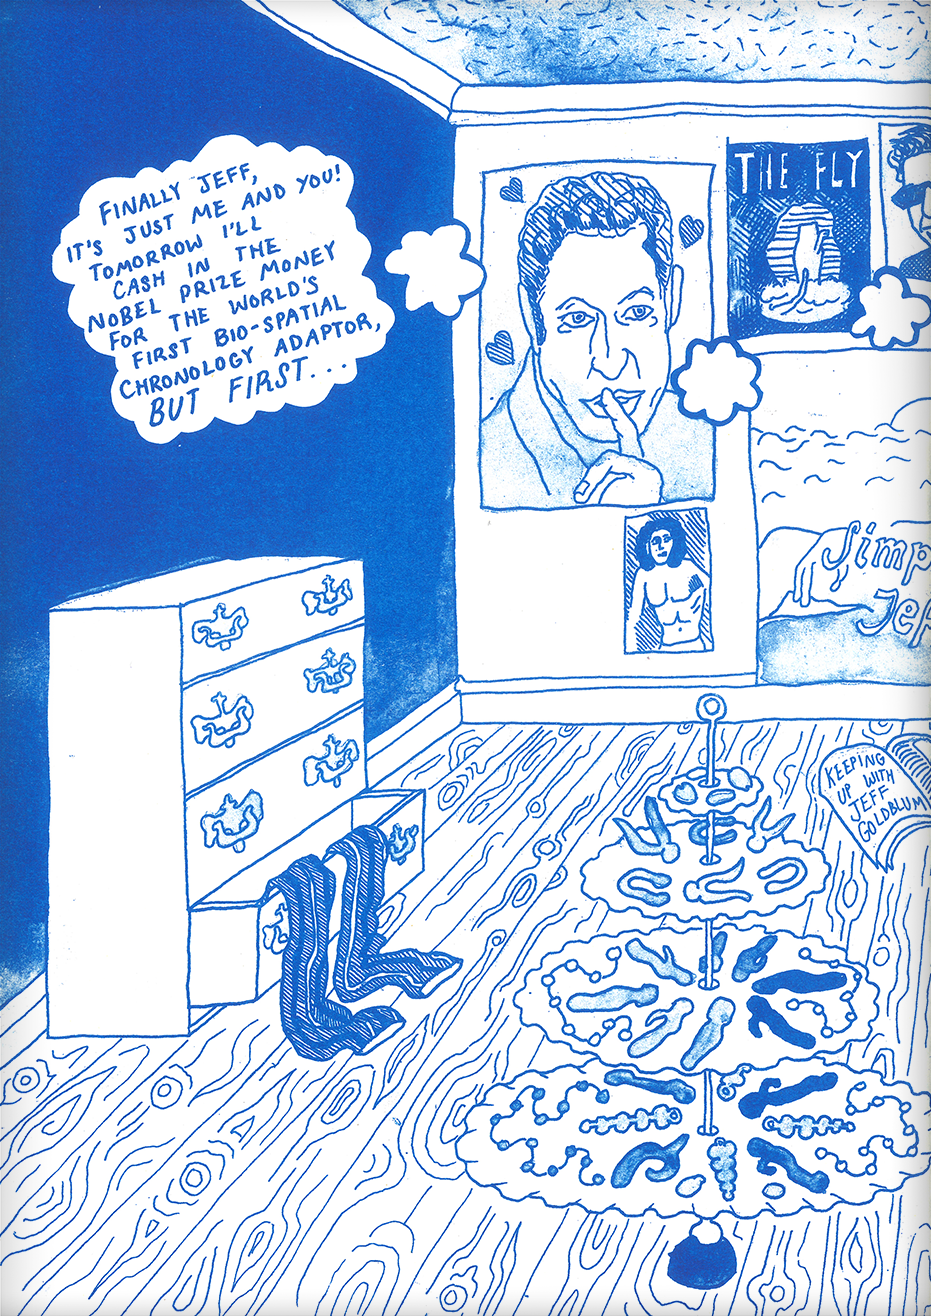 FINALLY JEFF,
IT'S JUST ME AND YOU!
TOMORROW I'LL
CASH IN THE
NOBEL PRIZE MONEY
FOR THE WORLD'S
FIRST BIO-SPATIAL
CHRONOLOGY ADAPTOR,
BUT FIRST...
THE FLY
Simp
Jef
KEEPING
UP WITH
JEFF
GOLDBLUM